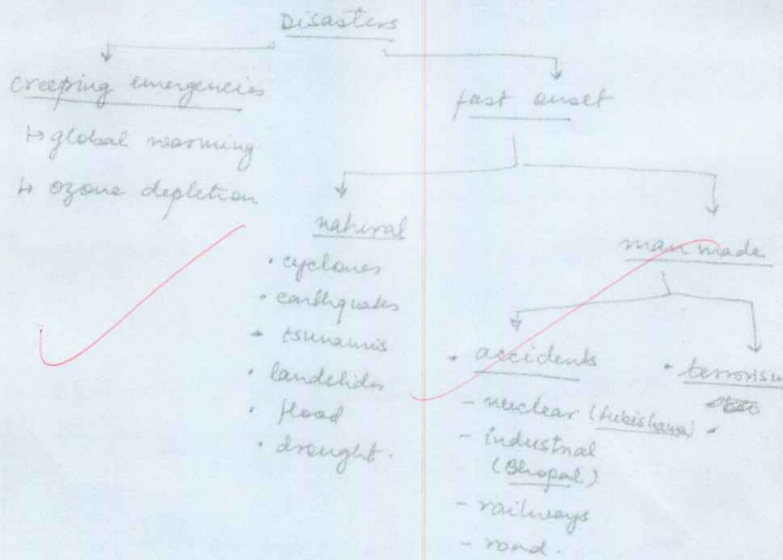 Disasters
creeping emergencies
↳ global warming
↳ ozone depletion
fast onset
natural
• cyclones
• earthquakes
• tsunamis
• landslides
• flood
• drought.
man made
• accidents
- nuclear (Fukishama)
- industrial
(Bhopal)
- railways
- road.
• terrorism